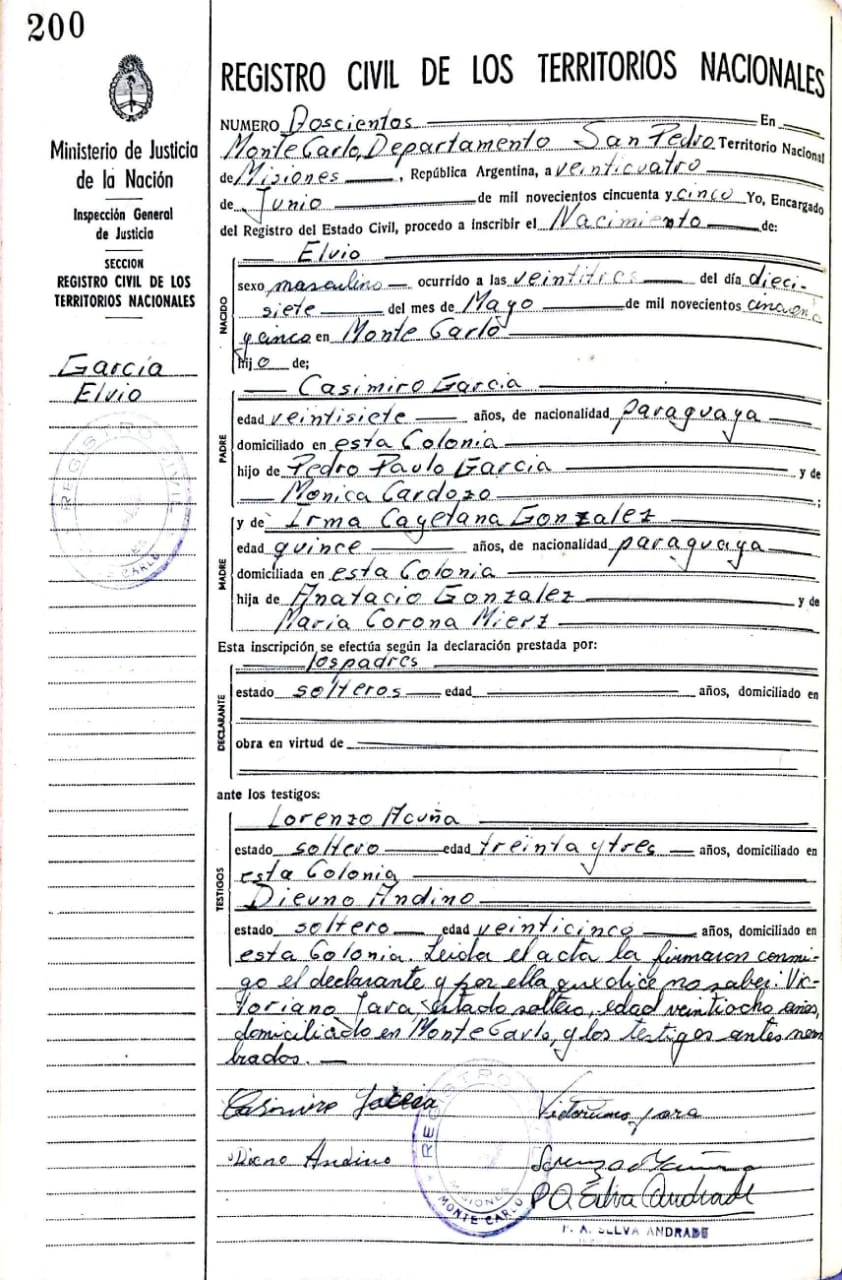 200
Ministerio de Justicia
de la Nación
Inspección General
de Justicia
SECCION
REGISTRO CIVIL DE LOS
TERRITORIOS NACIONALES
García
Elvio
REGISTRO CIVIL DE LOS TERRITORIOS NACIONALES
NUMERO Doscientos En
Monte Carlo, Departamento San Pedro Territorio Nacional
de Misiones, República Argentina, a veinticuatro
de Junio de mil novecientos cincuenta y cinco Yo, Encargado
del Registro del Estado Civil, procedo a inscribir el Nacimiento de:
NACIDO
Elvio
sexo masculino ocurrido a las veintitres del día dieci-
siete del mes de Mayo de mil novecientos cincuenta
y cinco en Monte Carlo
hijo de;
PADRE
Casimiro Garcia
edad veintisiete años, de nacionalidad paraguaya
domiciliado en esta Colonia
hijo de Pedro Paulo Garcia y de
Monica Cardozo ;
MADRE
y de Irma Cayetana Gonzalez
edad quince años, de nacionalidad paraguaya
domiciliada en esta Colonia
hija de Anatacio Gonzalez y de
Maria Corona Mierz
Esta inscripción se efectúa según la declaración prestada por:
DECLARANTE
los padres
estado solteros edad años, domiciliado en
obra en virtud de
ante los testigos:
TESTIGOS
Lorenzo Acuña
estado soltero edad treinta y tres años, domiciliado en
esta Colonia
Dieuno Andino
estado soltero edad veinticinco años, domiciliado en
esta Colonia. Leida el acta la firmaron conmi-
go el declarante y por ella que dice no saber: Vic-
toriano Jara, estado soltero, edad veintiocho años,
domiciliado en Monte Carlo, y los testigos antes nom
brados.
Casimiro Garcia
Victoriano Jara
Dieno Andino
Lorenzo Acuña
P A Selva Andrade
P. A. SELVA ANDRADE
REGISTRO
MISIONES
MONTE CARLO
REGISTRO CIVIL